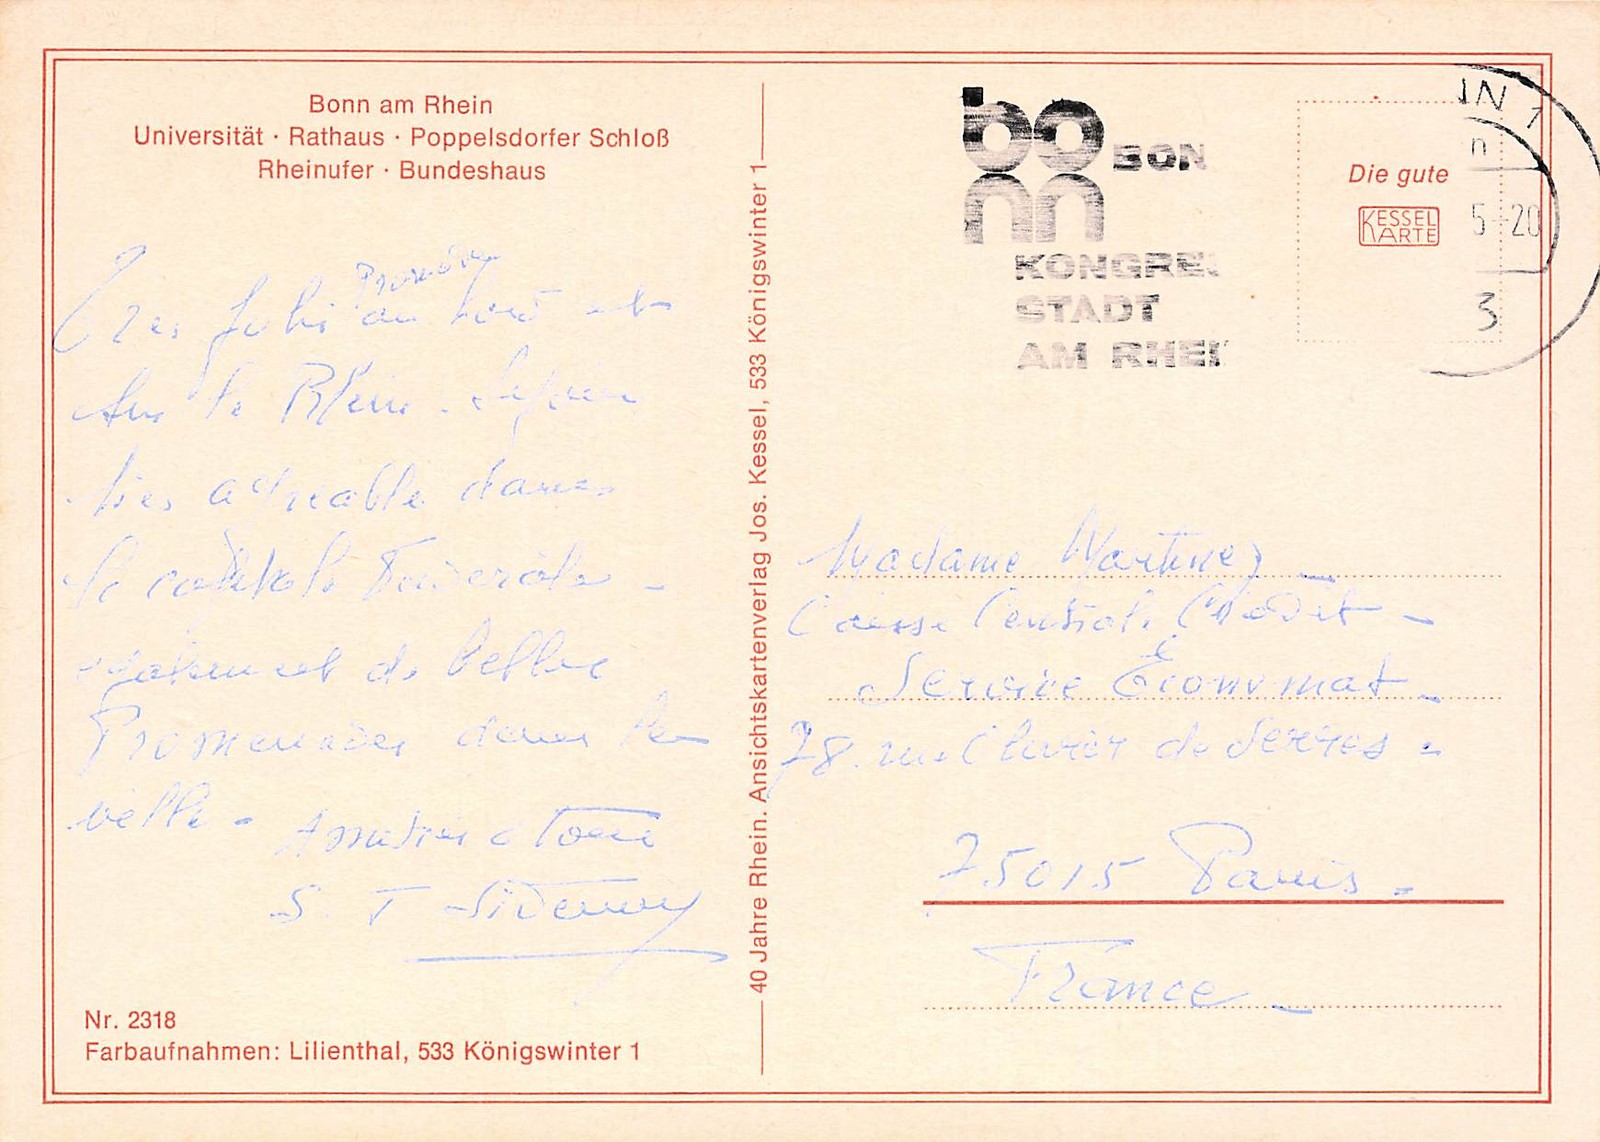 Bonn am Rhein
Universität · Rathaus · Poppelsdorfer Schloß
Rheinufer · Bundeshaus
Très Jolie
au bord
sur le Rhein.
très agréable dans
la capitale Fédérale -
également de belles
Promenades dans la
ville - Amitiés a Tous
S. T
Nr. 2318
Farbaufnahmen: Lilienthal, 533 Königswinter 1
40 Jahre Rhein. Ansichtskartenverlag Jos. Kessel, 533 Königswinter 1
bonn
BON
KONGRE
STADT
AM RHEI
Die gute
KESSEL
KARTE
N 1
5-20
3
Madame Martinez -
Caisse Centrale Crédit -
Service Économat -
78. rue Olivier de Serres -
75015 Paris -
France -